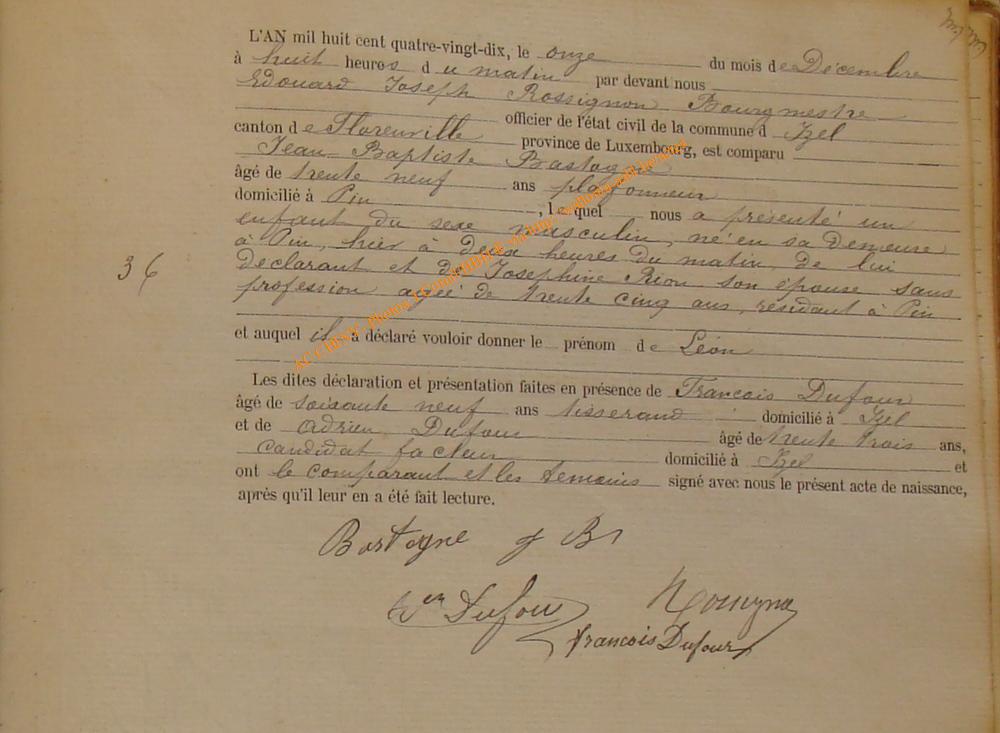 L'AN mil huit cent quatre-vingt-dix, le onze du mois de Décembre
à huit heures du matin par devant nous
Edouard Joseph Rossignon Bourgmestre
officier de l'état civil de la commune d Izel
canton de Florenville province de Luxembourg, est comparu
Jean Baptiste Bastogne
âgé de trente neuf ans plafonneur
domicilié à Pin, lequel nous a présenté un
enfant du sexe masculin, né en sa demeure
à Pin, hier à deux heures du matin, de lui
36
déclarant et de Josephine Rion son épouse sans
profession agée de trente cinq ans, résidant à Pin
et auquel il a déclaré vouloir donner le prénom de Léon
Les dites déclaration et présentation faites en présence de François Dufour
âgé de soixante neuf ans tisserand domicilié à Izel
et de Adrien Dufour âgé de trente trois ans,
candidat facteur domicilié à Izel et
ont le comparant et les temoins signé avec nous le présent acte de naissance,
après qu'il leur en a été fait lecture.
Bastogne J B
Dufour
francois Dufour